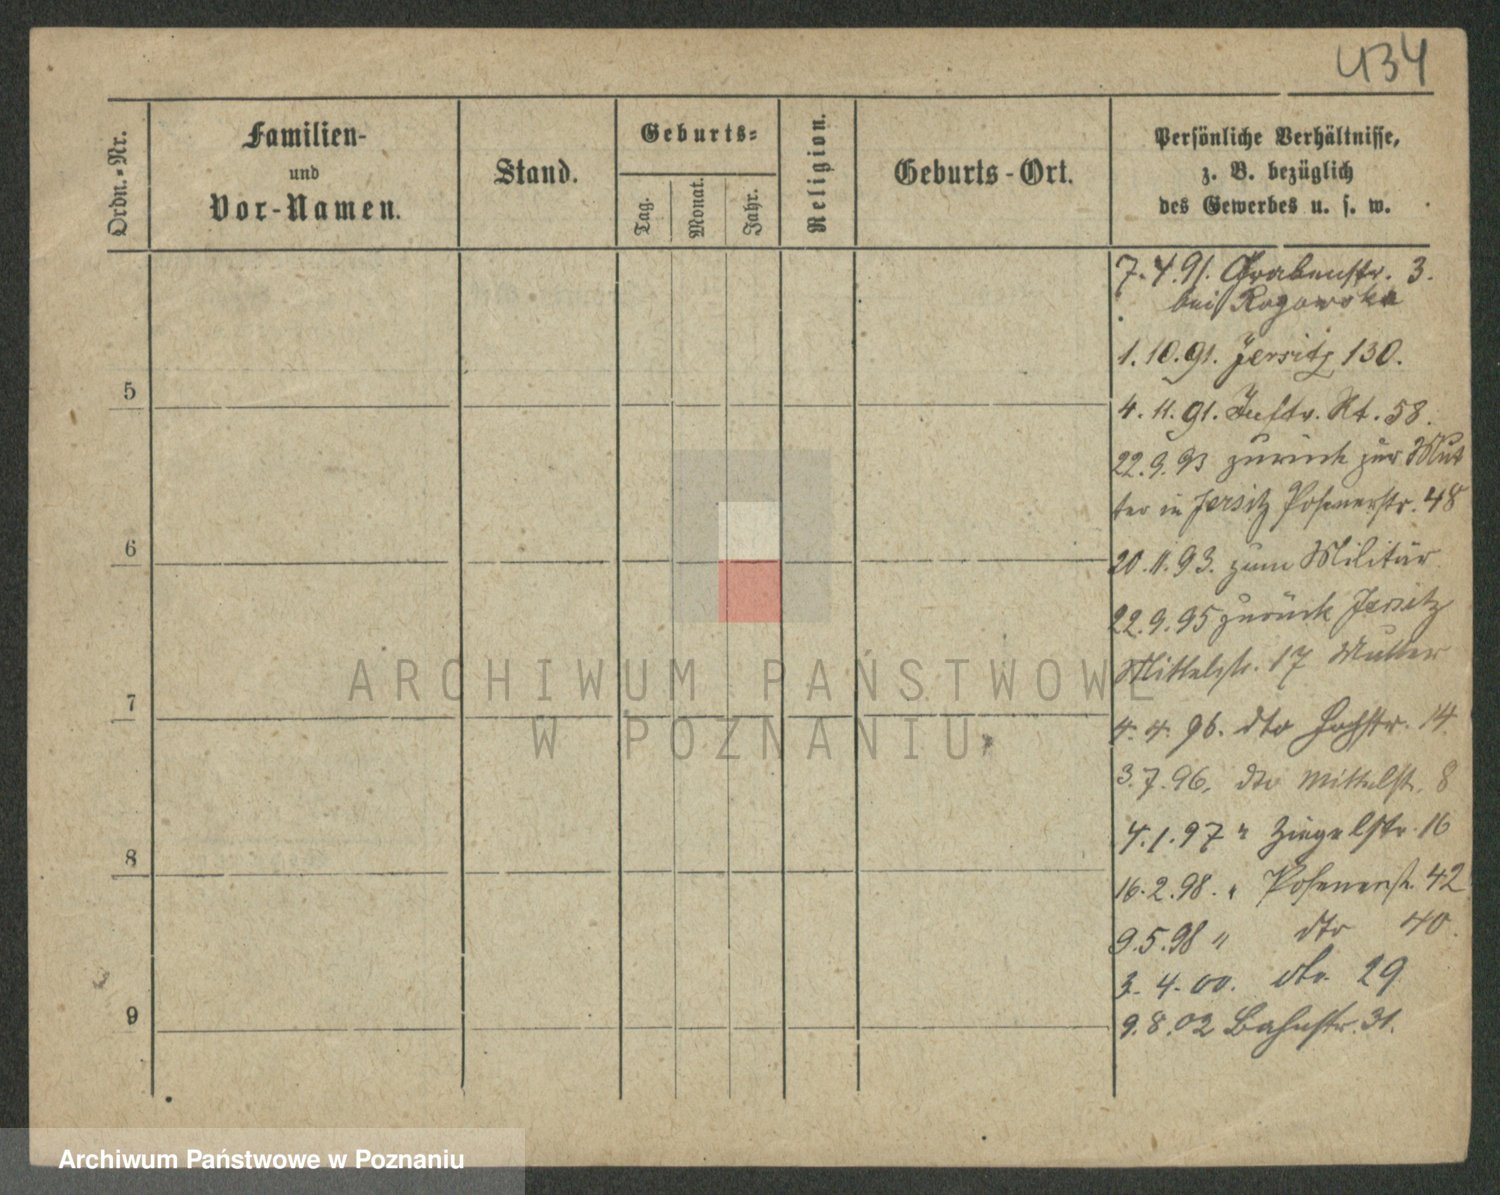 434
Ordn.-Nr.
Familien-
und
Vor-Namen.
Stand.
Geburts-
Tag.
Monat.
Jahr.
Religion.
Geburts-Ort.
Persönliche Verhältnisse,
z. B. bezüglich
des Gewerbes u. s. w.
7.4.91. Grabenstr. 3.
bei Rogowska
1.10.91. Jersitz 130.
4.11.91. 58.
22.9.93 zurück zur Mut
ter in Jersitz Posenerstr. 48
20.11.93. zum Militär
22.9.95 zurück Jersitz
Mittelstr. 17 Mutter
4.4.96. dto Hochstr. 14
3.7.96. dto Mittelstr. 8
4.1.97 " Ziegelstr. 16
16.2.98. " Posenerstr. 42
9.5.98 " dto 40.
3.4.00. dto 29
9.8.02 Bahnstr. 31.
5
6
7
8
9
ARCHIWUM PAŃSTWOWE
W POZNANIU
Archiwum Państwowe w Poznaniu